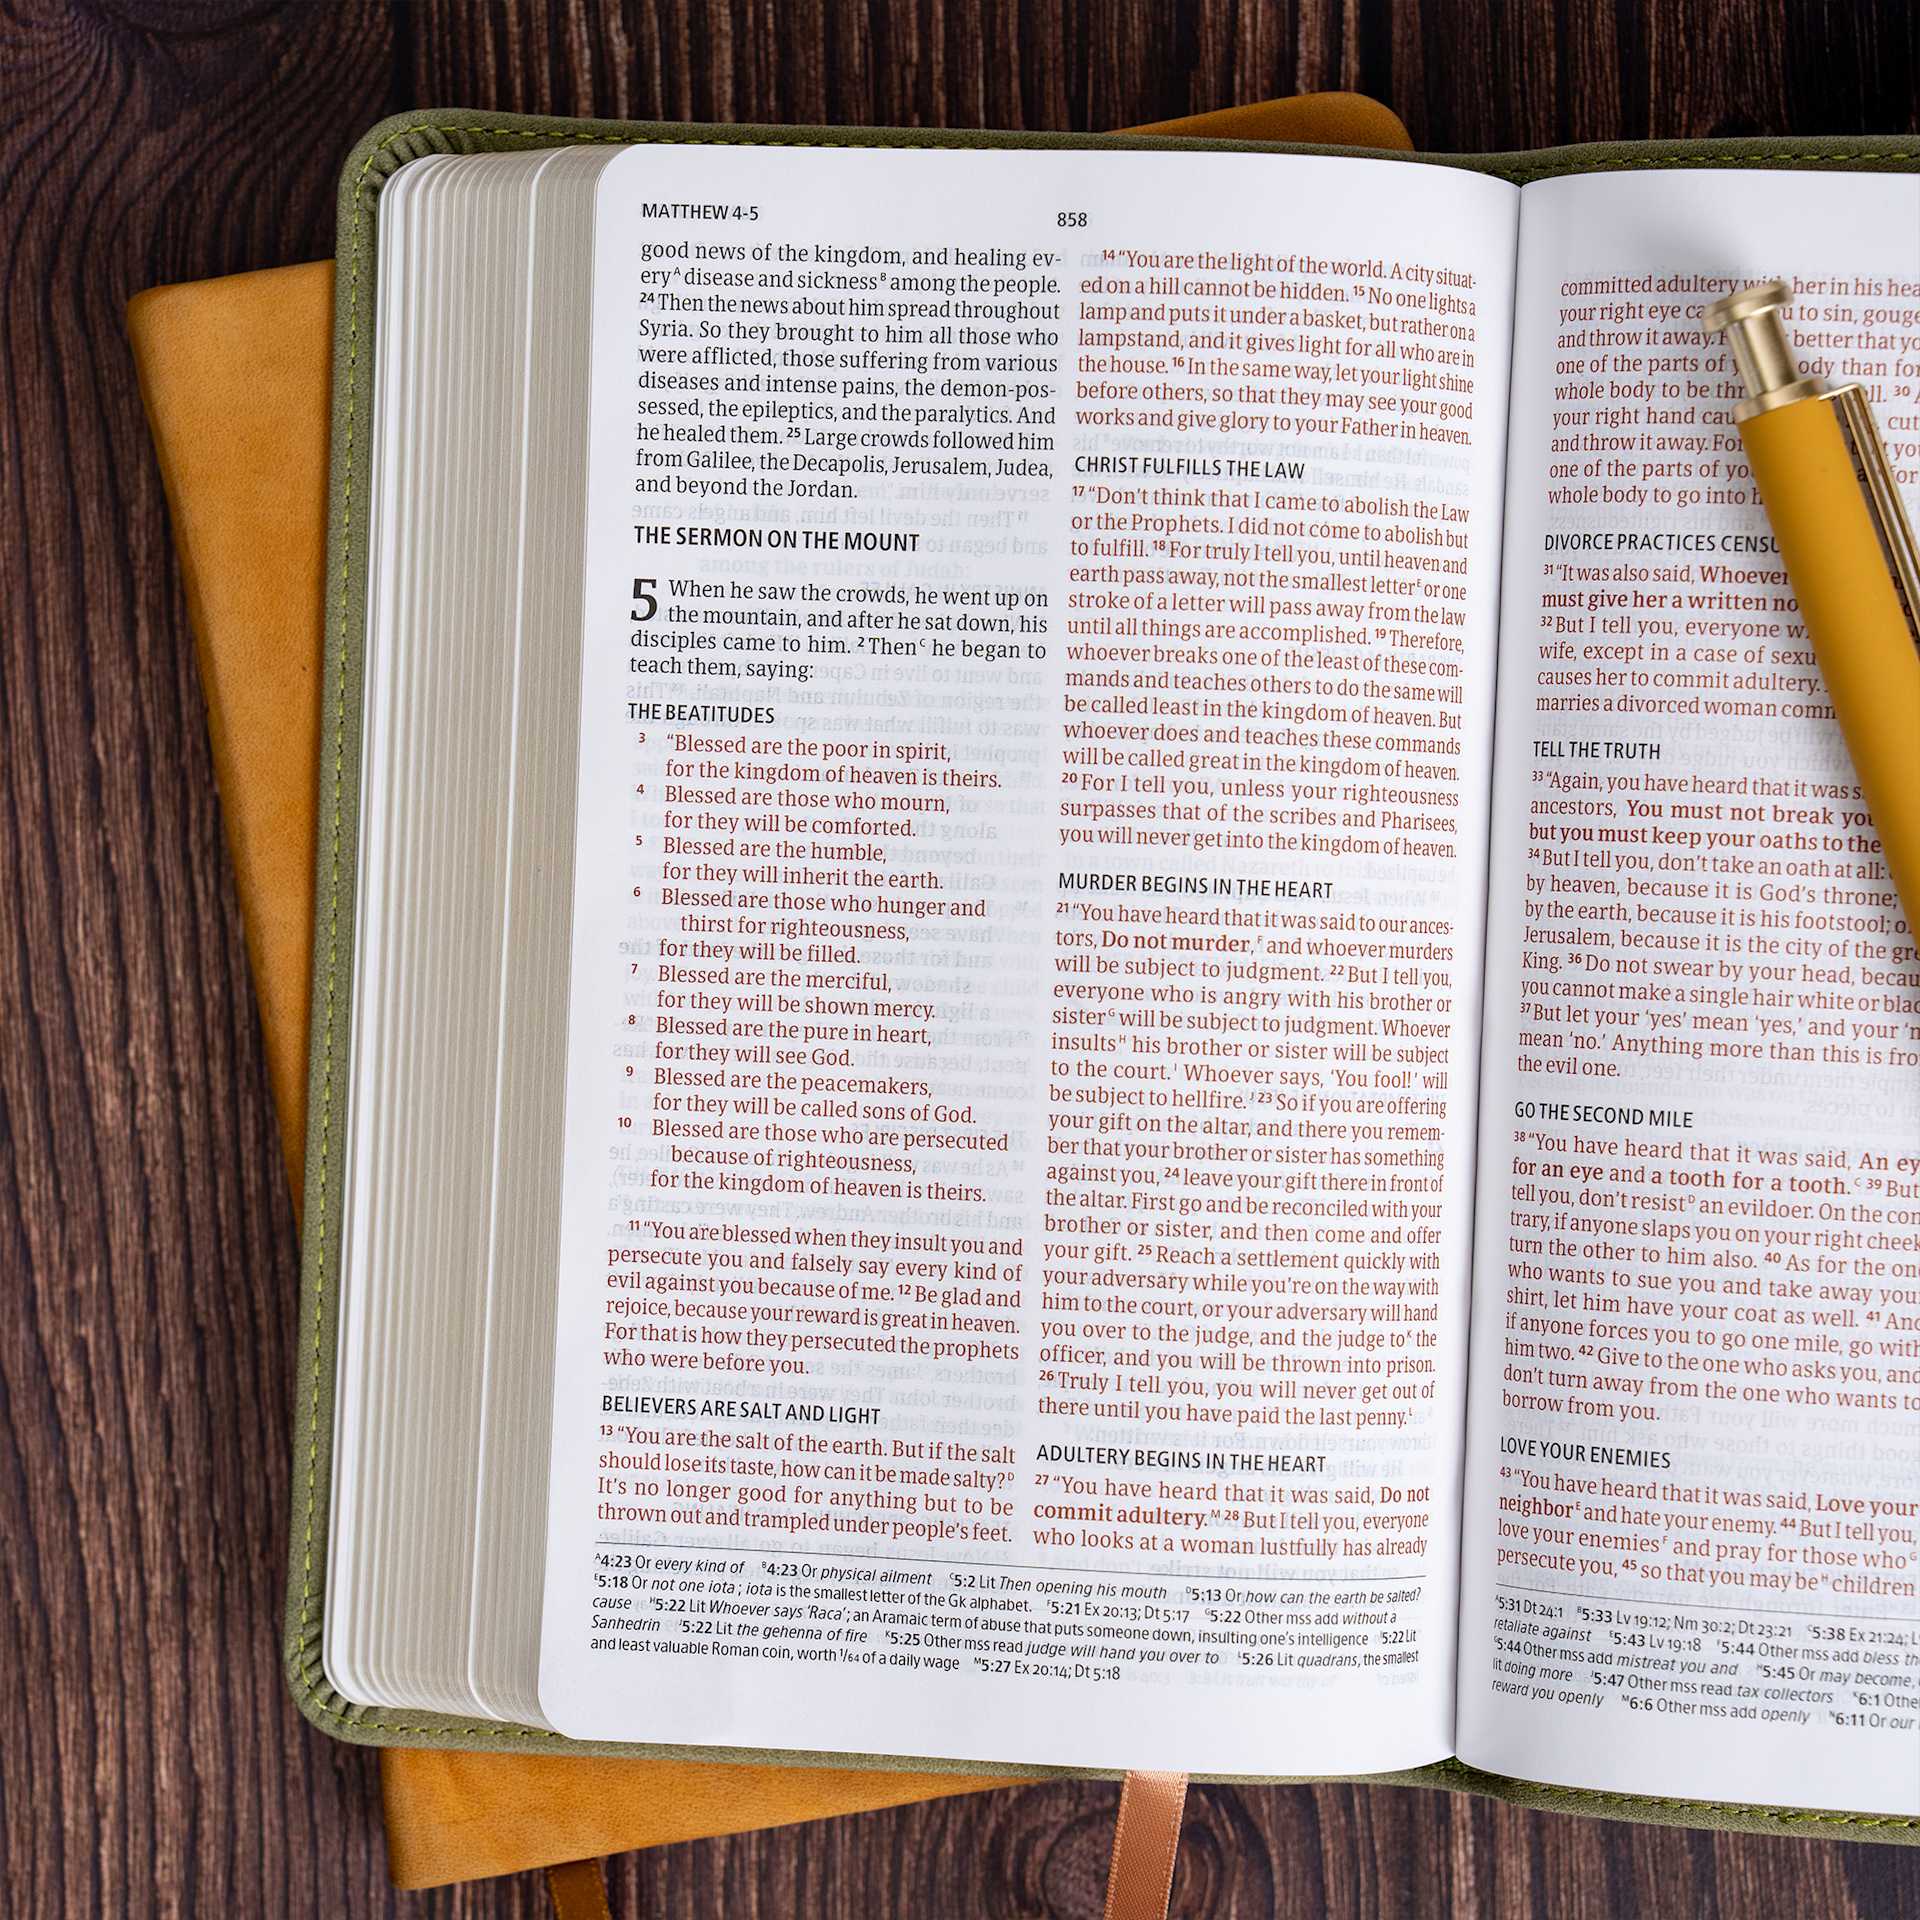 MATTHEW 4-5
858
good news of the kingdom, and healing ev-
ery ᴬ disease and sickness ᴮ among the people.
24 Then the news about him spread throughout
Syria. So they brought to him all those who
were afflicted, those suffering from various
diseases and intense pains, the demon-pos-
sessed, the epileptics, and the paralytics. And
he healed them. 25 Large crowds followed him
from Galilee, the Decapolis, Jerusalem, Judea,
and beyond the Jordan.
THE SERMON ON THE MOUNT
5 When he saw the crowds, he went up on
the mountain, and after he sat down, his
disciples came to him. 2 Then C he began to
teach them, saying:
THE BEATITUDES
3 “Blessed are the poor in spirit,
for the kingdom of heaven is theirs.
4 Blessed are those who mourn,
for they will be comforted.
5 Blessed are the humble,
for they will inherit the earth.
6 Blessed are those who hunger and
thirst for righteousness,
for they will be filled.
7 Blessed are the merciful,
for they will be shown mercy.
8 Blessed are the pure in heart,
for they will see God.
9 Blessed are the peacemakers,
for they will be called sons of God.
10 Blessed are those who are persecuted
because of righteousness,
for the kingdom of heaven is theirs.
11 “You are blessed when they insult you and
persecute you and falsely say every kind of
evil against you because of me. 12 Be glad and
rejoice, because your reward is great in heaven.
For that is how they persecuted the prophets
who were before you.
BELIEVERS ARE SALT AND LIGHT
13 “You are the salt of the earth. But if the salt
should lose its taste, how can it be made salty? D
It’s no longer good for anything but to be
thrown out and trampled under people’s feet.
14 “You are the light of the world. A city situat-
ed on a hill cannot be hidden. 15 No one lights a
lamp and puts it under a basket, but rather on a
lampstand, and it gives light for all who are in
the house. 16 In the same way, let your light shine
before others, so that they may see your good
works and give glory to your Father in heaven.
CHRIST FULFILLS THE LAW
17 “Don’t think that I came to abolish the Law
or the Prophets. I did not come to abolish but
to fulfill. 18 For truly I tell you, until heaven and
earth pass away, not the smallest letter E or one
stroke of a letter will pass away from the law
until all things are accomplished. 19 Therefore,
whoever breaks one of the least of these com-
mands and teaches others to do the same will
be called least in the kingdom of heaven. But
whoever does and teaches these commands
will be called great in the kingdom of heaven.
20 For I tell you, unless your righteousness
surpasses that of the scribes and Pharisees,
you will never get into the kingdom of heaven.
MURDER BEGINS IN THE HEART
21 “You have heard that it was said to our ances-
tors, Do not murder, F and whoever murders
will be subject to judgment. 22 But I tell you,
everyone who is angry with his brother or
sister G will be subject to judgment. Whoever
insults H his brother or sister will be subject
to the court. I Whoever says, ‘You fool!’ will
be subject to hellfire. J 23 So if you are offering
your gift on the altar, and there you remem-
ber that your brother or sister has something
against you, 24 leave your gift there in front of
the altar. First go and be reconciled with your
brother or sister, and then come and offer
your gift. 25 Reach a settlement quickly with
your adversary while you’re on the way with
him to the court, or your adversary will hand
you over to the judge, and the judge to K the
officer, and you will be thrown into prison.
26 Truly I tell you, you will never get out of
there until you have paid the last penny. L
ADULTERY BEGINS IN THE HEART
27 “You have heard that it was said, Do not
commit adultery. M 28 But I tell you, everyone
who looks at a woman lustfully has already
A 4:23 Or every kind of B 4:23 Or physical ailment C 5:2 Lit Then opening his mouth D 5:13 Or how can the earth be salted?
E 5:18 Or not one iota; iota is the smallest letter of the Gk alphabet. F 5:21 Ex 20:13; Dt 5:17 G 5:22 Other mss add without a
cause H 5:22 Lit Whoever says ‘Raca’; an Aramaic term of abuse that puts someone down, insulting one’s intelligence I 5:22 Lit
Sanhedrin J 5:22 Lit the gehenna of fire K 5:25 Other mss read judge will hand you over to L 5:26 Lit quadrans, the smallest
and least valuable Roman coin, worth 1/64 of a daily wage M 5:27 Ex 20:14; Dt 5:18
committed adultery with her in his
your right eye u to sin, gouge
and throw it away. better that
one of the parts of ody than for
whole body to be ll. 30
your right hand cut
and throw it away. For
one of the parts of for
whole body to go into
DIVORCE PRACTICES
31 “It was also said, Whoever
must give her a written
32 But I tell you, everyone
wife, except in a case of
causes her to commit adultery.
marries a divorced woman
TELL THE TRUTH
33 “Again, you have heard that it was
ancestors, You must not break
but you must keep your oaths to the
34 But I tell you, don’t take an oath at all:
by heaven, because it is God’s throne;
by the earth, because it is his footstool;
Jerusalem, because it is the city of the
King. 36 Do not swear by your head,
you cannot make a single hair white or
37 But let your ‘yes’ mean ‘yes,’ and your
mean ‘no.’ Anything more than this is
the evil one.
GO THE SECOND MILE
38 “You have heard that it was said, An
for an eye and a tooth for a tooth. C 39 But
tell you, don’t resist D an evildoer. On the con-
trary, if anyone slaps you on your right cheek
turn the other to him also. 40 As for the
who wants to sue you and take away
shirt, let him have your coat as well. 41
if anyone forces you to go one mile, go with
him two. 42 Give to the one who asks you, and
don’t turn away from the one who wants to
borrow from you.
LOVE YOUR ENEMIES
43 “You have heard that it was said, Love your
neighbor E and hate your enemy. 44 But I tell you,
love your enemies F and pray for those who G
persecute you, 45 so that you may be H children
A 5:31 Dt 24:1 B 5:33 Lv 19:12; Nm 30:2; Dt 23:21 C 5:38 Ex 21:24;
retaliate against E 5:43 Lv 19:18 F 5:44 Other mss add bless
G 5:44 Other mss add mistreat you and H 5:45 Or may become,
lit doing more J 5:47 Other mss read tax collectors K 6:1
reward you openly M 6:6 Other mss add openly N 6:11 Or our